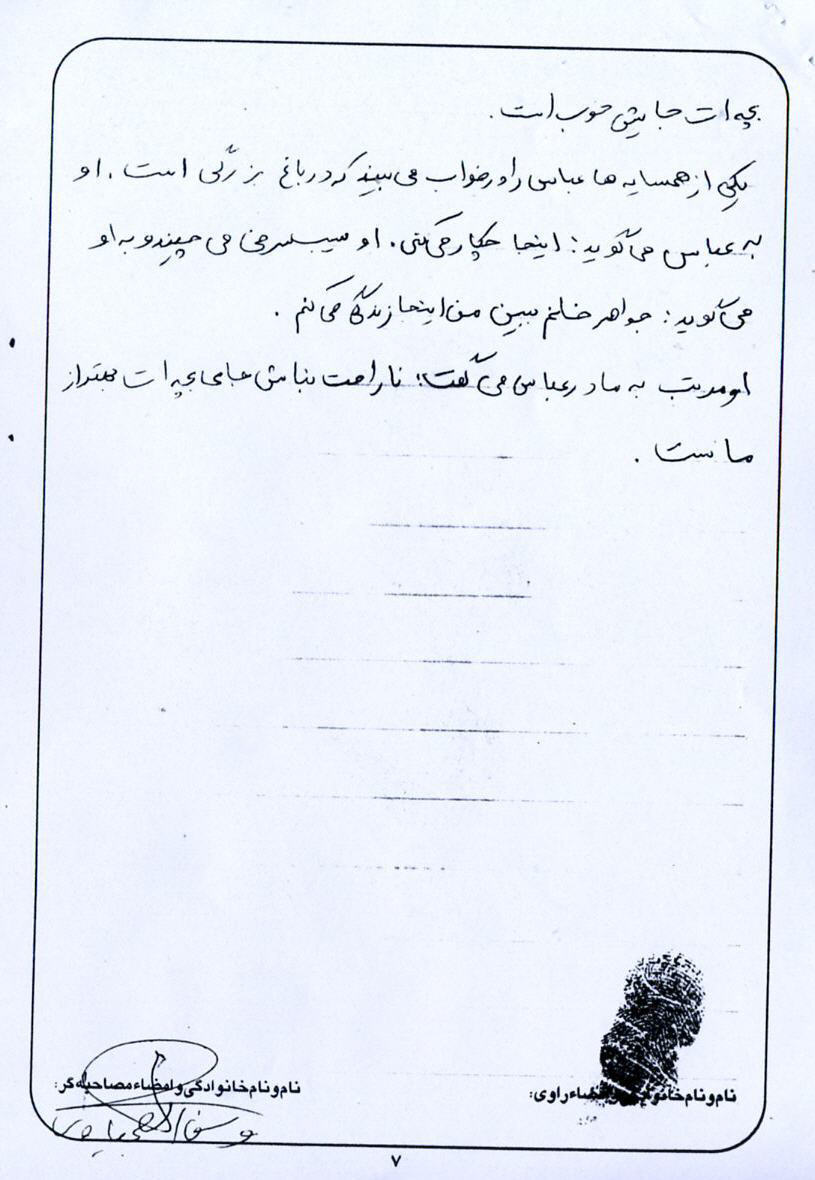 بچه ات جایش خوب است.
یکی از همسایه ها عباس را در خواب می بیند که در باغ بزرگی است. او
به عباس می گوید: اینجا چکار می کنی. او سیب سرخی می چیند و به او
می گوید: جواهر خانم ببین من اینجا زندگی می کنم.
او مرتب به مادر عباس می گفت: ناراحت نباش جای بچه ات بهتر از
ماست.
نام و نام خانوادگی و امضاء راوی:
نام و نام خانوادگی و امضاء مصاحبه گر:
۷